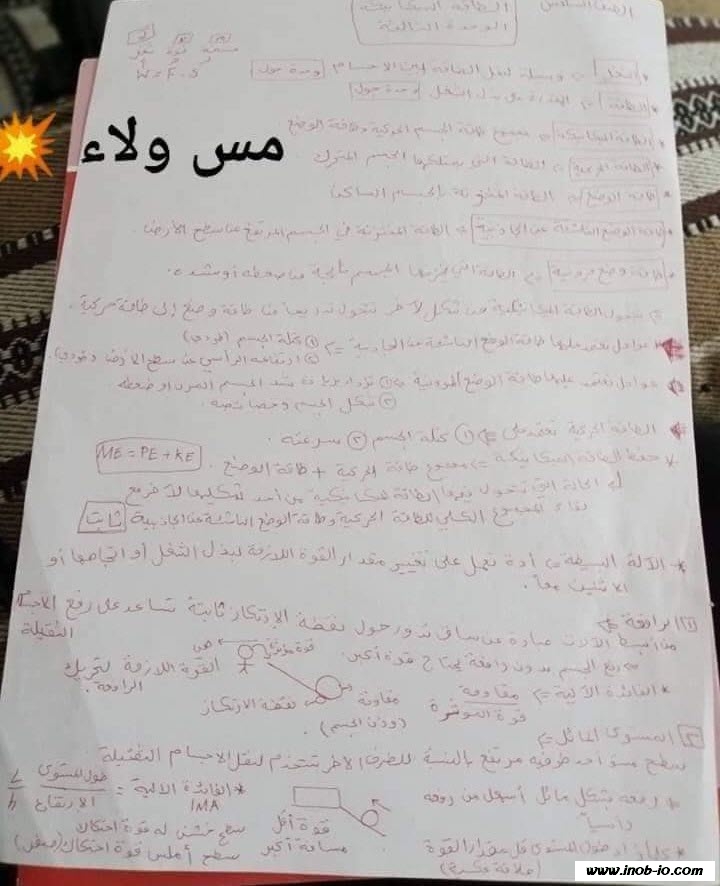 الصف السادس
الطاقة الميكانيكية
الوحدة الثالثة
مسافة قوة شغل
W = F . S
* الشغل وسيلة لنقل الطاقة بين الأجسام وحدة جول
* الطاقة القدرة على بذل الشغل وحدة جول
مس ولاء
* الطاقة الميكانيكية مجموع طاقة الجسم الحركية وطاقة الوضع
* الطاقة الحركية الطاقة التي يمتلكها الجسم المتحرك.
* طاقة الوضع الطاقة المخزونة بالجسم الساكن
* طاقة الوضع الناشئة عن الجاذبية الطاقة المخزونة في الجسم المرتفع عن سطح الأرض.
* طاقة وضع مرونية الطاقة التي يخزنها الجسم نتيجة ضغطه أو شده.
تتحول الطاقة الميكانيكية من شكل لآخر تتحول من طاقة وضع إلى طاقة حركية.
عوامل تعتمد عليها طاقة الوضع الناشئة عن الجاذبية ① كتلة الجسم (طردي)
② ارتفاعه الرأسي عن سطح الأرض (طردي).
عوامل تعتمد عليها طاقة الوضع المرونية ① تزداد بزيادة شد الجسم المرن أو ضغطه
② شكل الجسم وخصائصه.
الطاقة الحركية تعتمد على ① كتلة الجسم ② سرعته.
* حفظ الطاقة الميكانيكية مجموع طاقة الحركية + طاقة الوضع. ME = PE + KE
الحالة التي تتحول فيها الطاقة الميكانيكية من أحد أشكالها لآخر مع
بقاء المجموع الكلي للطاقة الحركية وطاقة الوضع الناشئة عن الجاذبية ثابت
* الآلة البسيطة أداة تعمل على تغيير مقدار القوة اللازمة لبذل الشغل أو اتجاهها أو
الاثنين معاً.
① الرافعة
من أبسط الآلات عبارة عن ساق تدور حول نقطة الارتكاز ثابتة تساعد على رفع الأجسام
الثقيلة
رفع الجسم بدون رافعة يحتاج قوة أكبر.
قوة مؤثرة
القوة اللازمة لتحريك
الرافعة.
* الفائدة الآلية = مقاومة
قوة المؤثرة
مقاومة
(وزن الجسم)
نقطة الارتكاز
② المستوى المائل
سطح مستو أحد طرفيه مرتفع بالنسبة للطرف الآخر تستخدم لنقل الأجسام الثقيلة
* رفعه بشكل مائل أسهل من رفعه
رأسياً
قوة أقل
مسافة أكبر
* الفائدة الآلية = طول المستوى
الارتفاع
IMA
سطح خشن له قوة احتكاك
سطح أملس قوة احتكاك (صفر)
طول المستوى قل مقدار القوة
(علاقة عكسية)
www.inob-io.com